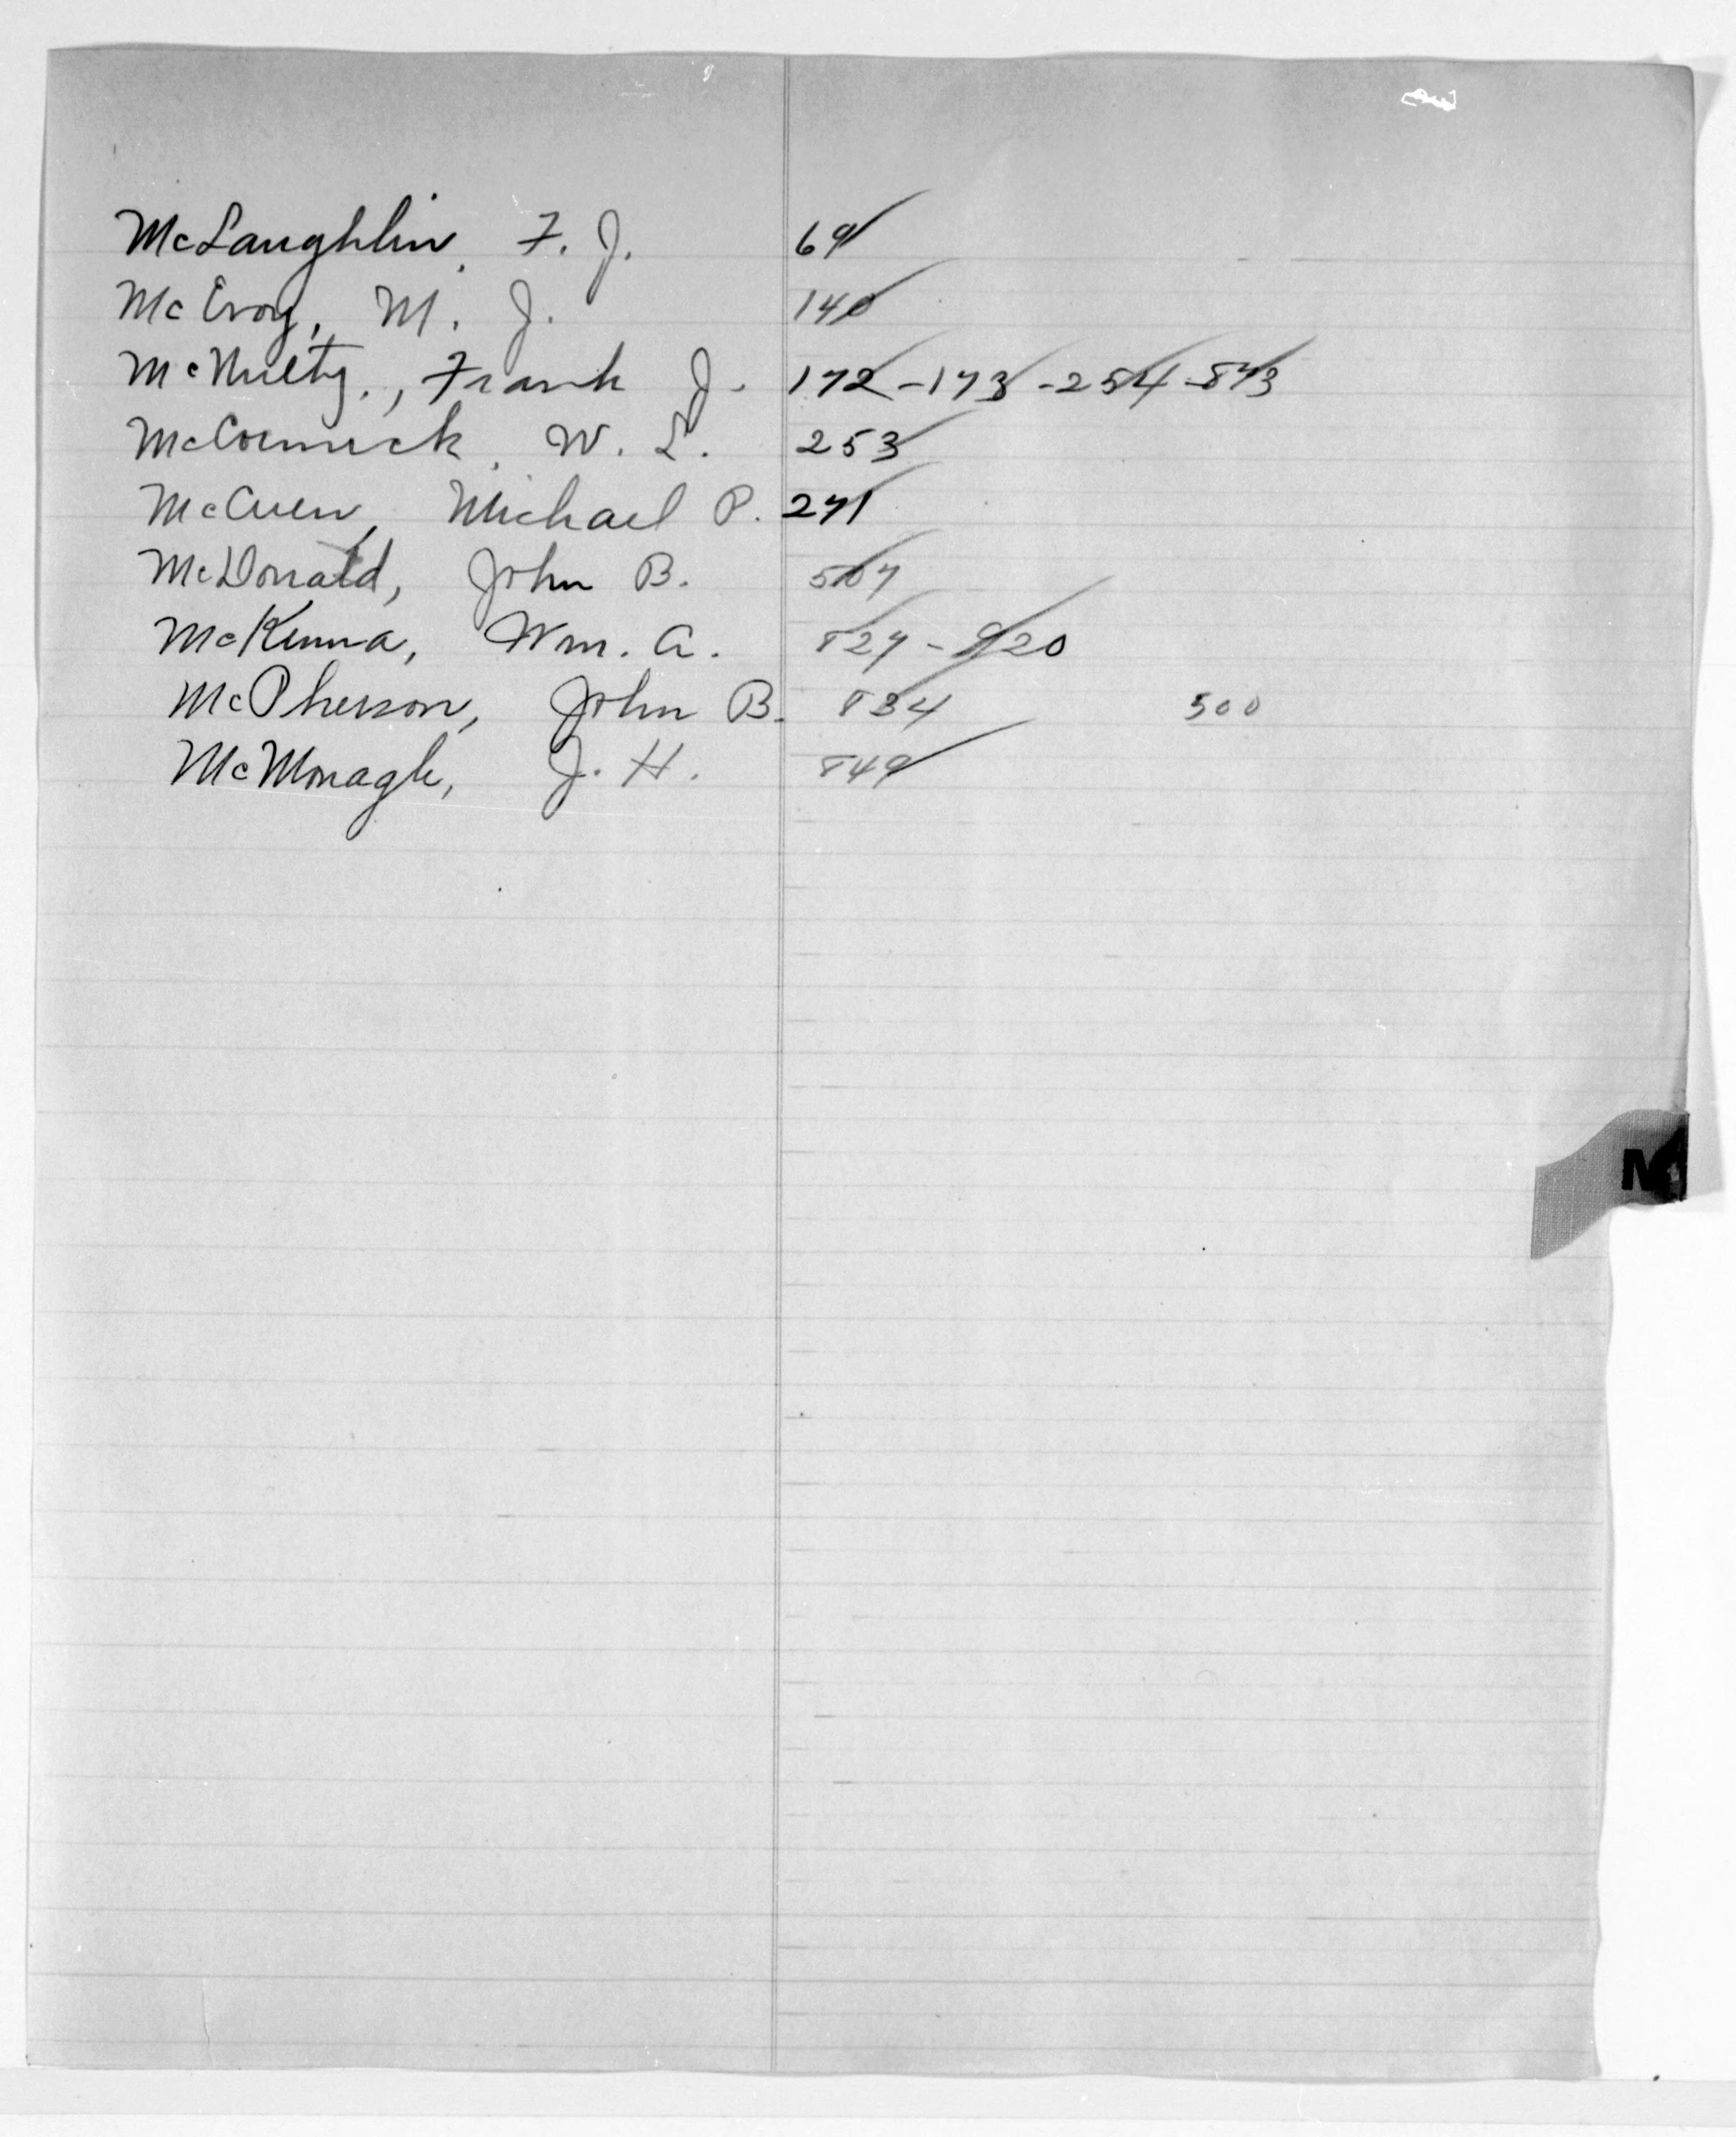 McLaughlin, F. J. 69
McEvoy, M. J. 140
McNulty, Frank J. 172-173-254-873
McCormick, W. L. 253
McCuen, Michael P. 271
McDonald, John B. 507
McKenna, Wm. A. 827-920
McPherson, John B. 834 500
McMonagle, J. H. 849